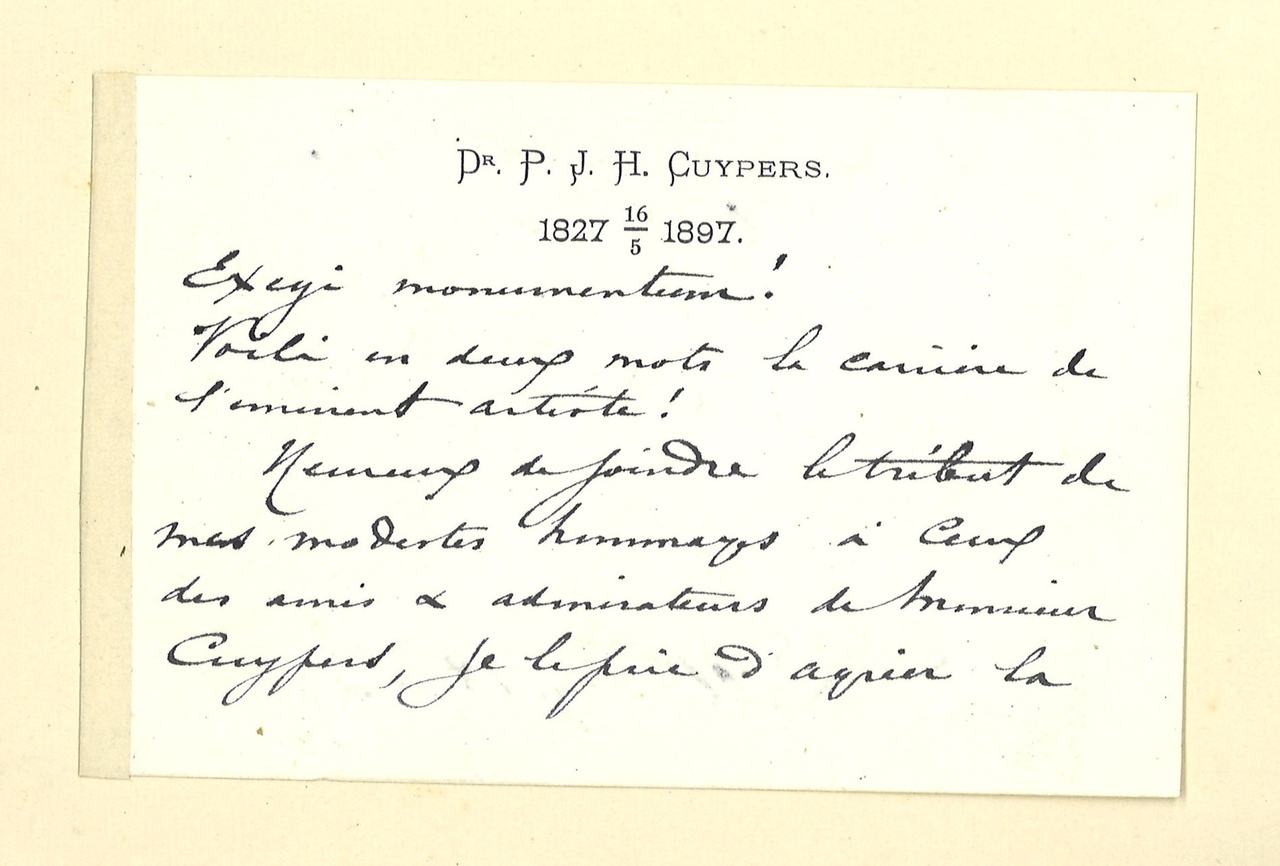 Dr. P. J. H. Cuypers.
1827 16/5 1897.
Exegi monumentum!
Voilà en deux mots la carrière de
l'eminent artiste!
Heureux de joindre le tribut de
mes modestes hommages à ceux
des amis & admirateurs de Monsieur
Cuypers, je le prie d'agréer la